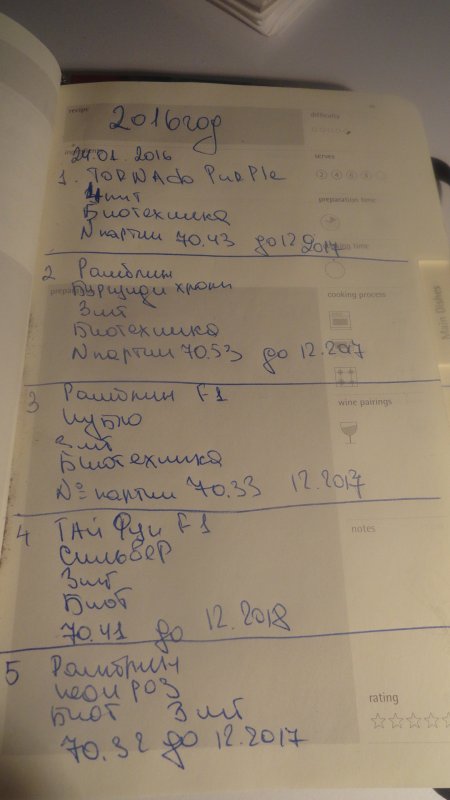 recipe
2016год
difficulty
24.01.2016
serves
1. TORNAdo PuRPle
4 шт
preparation time
Биотехника
N партии 70.43 до 12 2017
2 Рамблин
Бургунди
3 шт
cooking process
Биотехника
N партии 70.53 до 12.2017
Main Dishes
3 Рамблин F1
wine pairings
3 шт
Биотехника
№ партии 70.33 12.2017
4 ТАй Фун F1
notes
СильвеР
3 шт
Биот
70.41 до 12.2018
5 Рамблин
неон РОЗ
rating
Биот 3 шт
70.32 до 12.2017